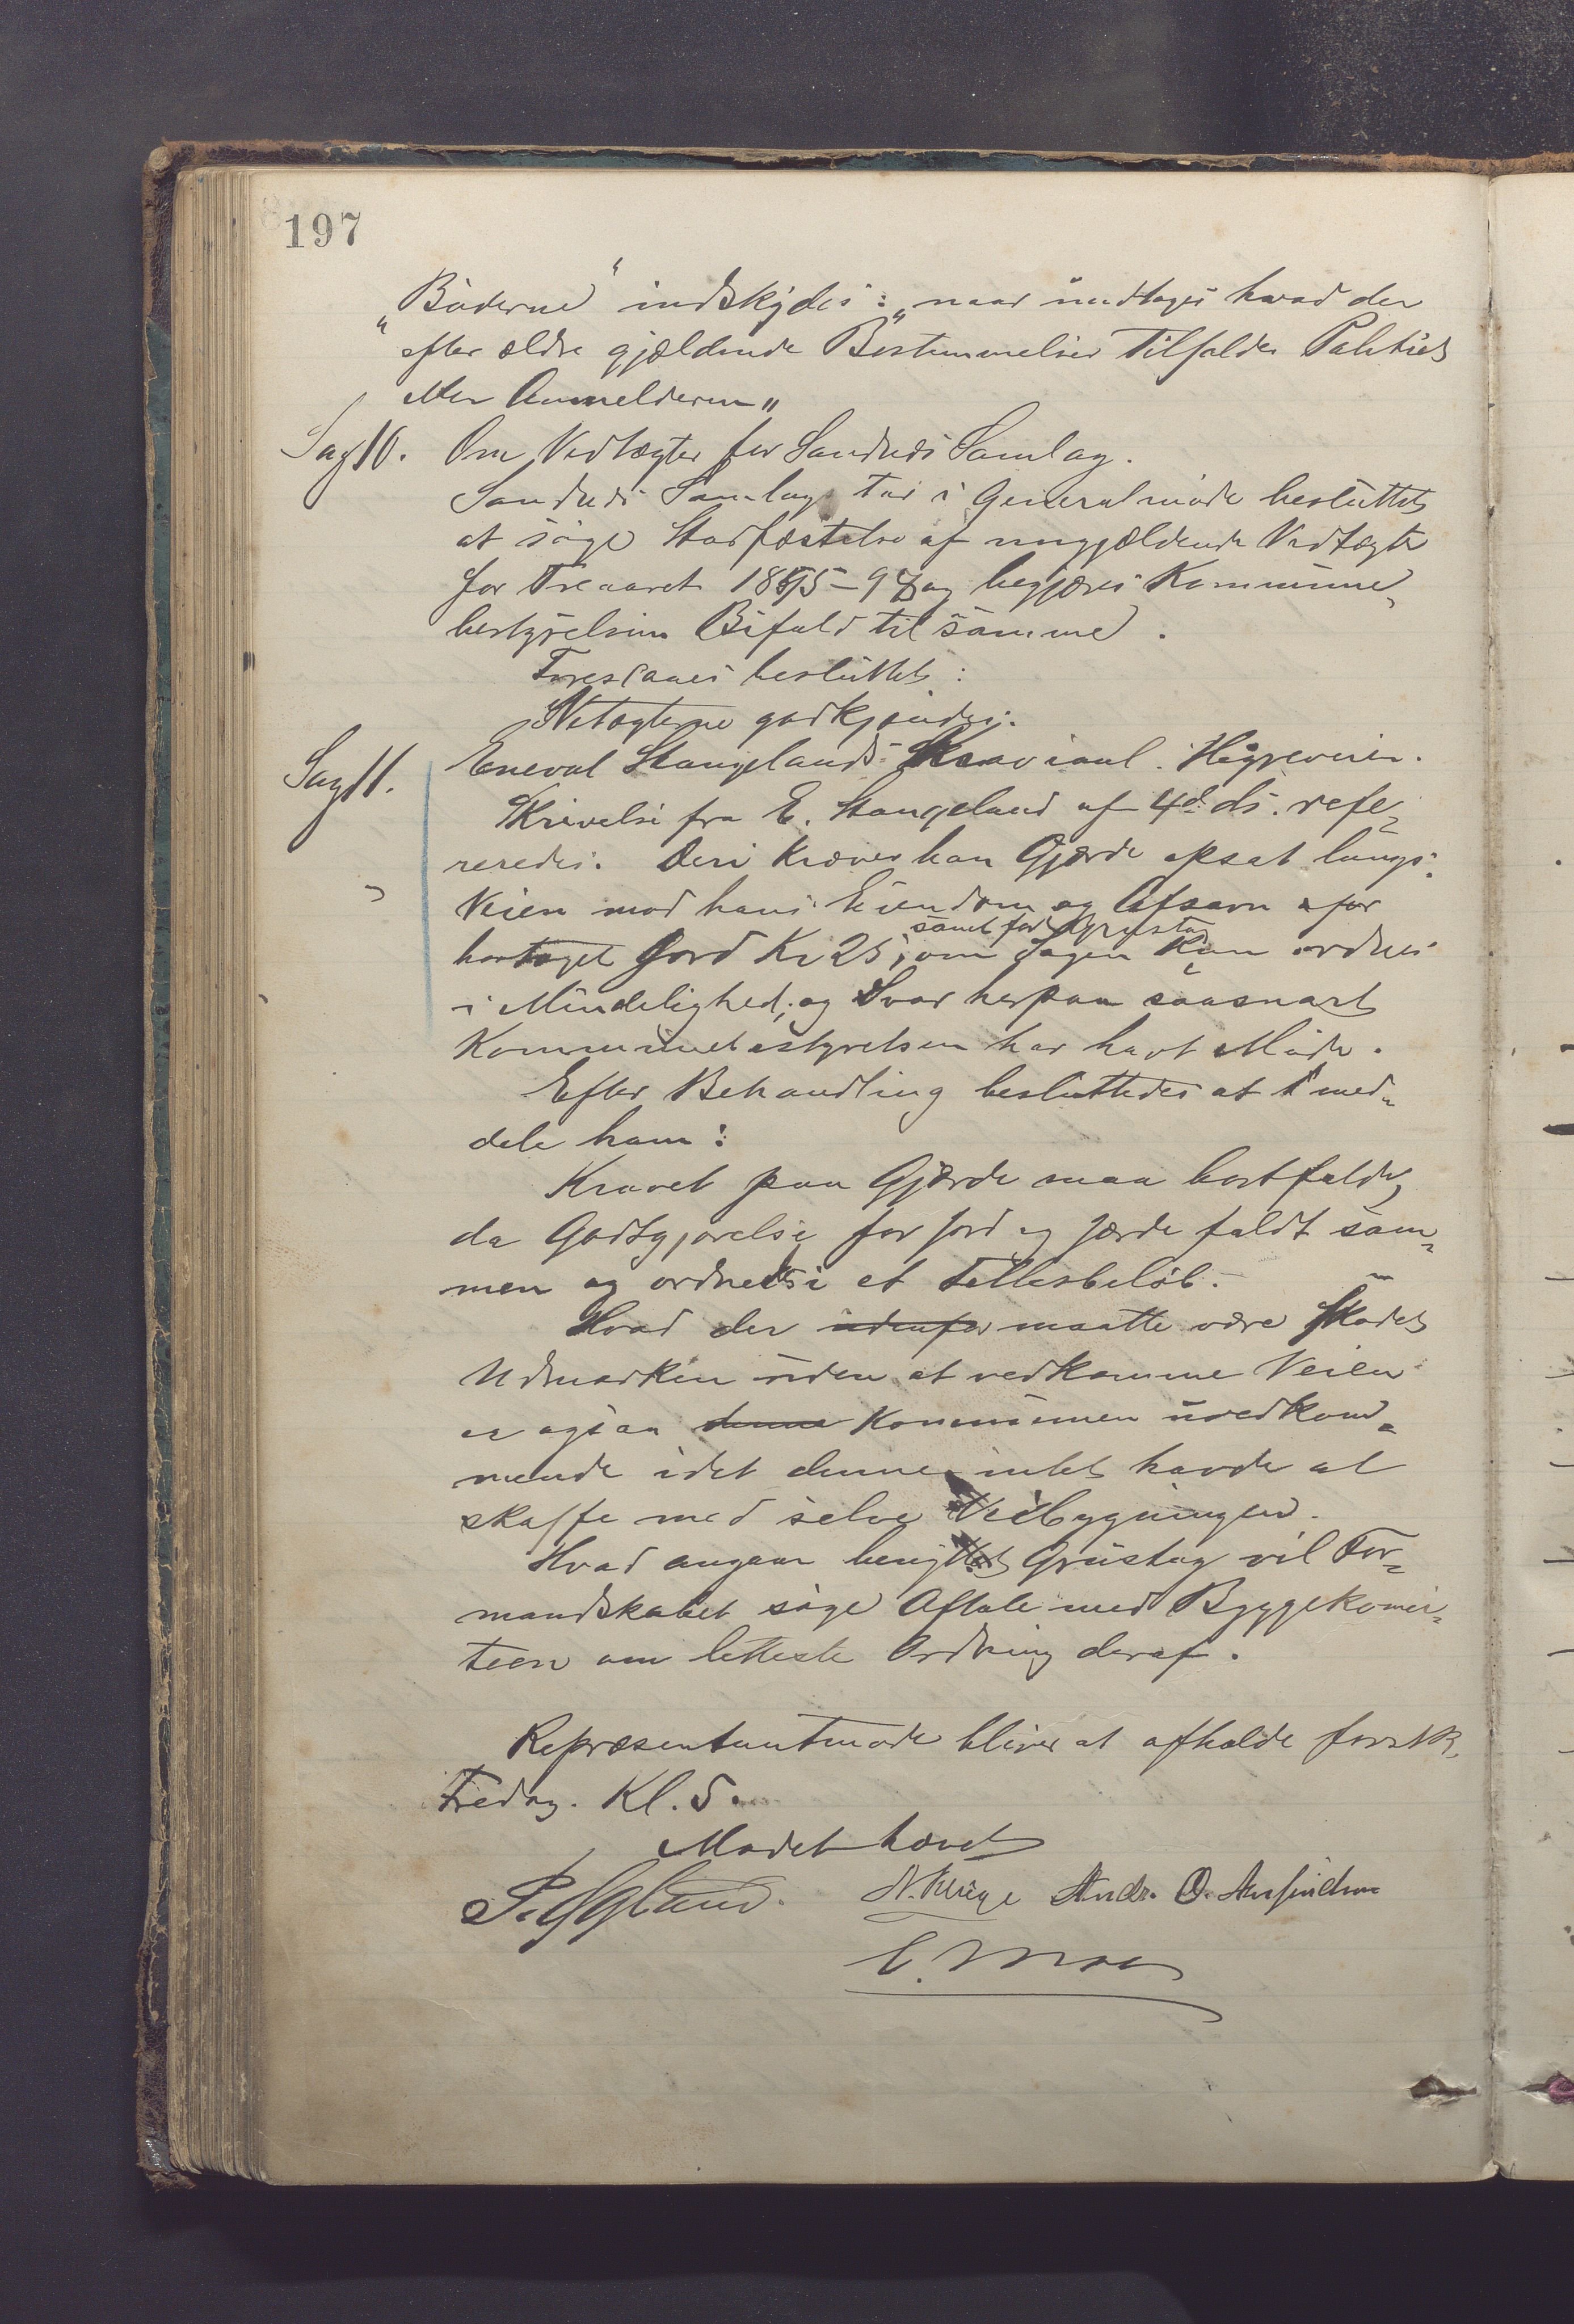 197
„Böderne“ indskydes: „naar undtages hvad der
efter ældre gjældende Bestemmelser tilfalder Politiet
eller Anmelderen„
Sag 10. Om Vedtægter for Sandnes Samlag.
Sandnes Samlag har i Generalmöde besluttet
at söge Stadfæstelse af nugjældende Vedtægter
for Treaaret 1895-97 og begjæres Kommune-
bestyrelsens Bifald til samme.
Foreslaaes besluttet:
Vetægterne godkjendes.
Sag 11. Eneval Stangelands Krav i anl. Högreveien.
Skrivelse fra E. Stangeland af 4de ds. refe-
reredes. Deri kræver han Gjærde opsat langs
Veien mod hans Eiendom og Afsavn for
samt for Grustag
borttaget Jord Kr 25, om Sagen kan ordnes
i Mindelighed, og Svar herpaa saasnart
Kommunebestyrelsen har havt Möde.
Efter Behandling besluttedes at med-
dele ham:
Kravet paa Gjærde maa bortfalde,
da Godtgjörelse for Jord og Jærde faldt sam-
men og ordnedes i et Fellesbelöb.
Hvad der udenfor maatte være skadet
Udmarken uden at vedkomme Veien
er ogsaa denne Kommunen uvedkom-
mende idet denne intet havde at
skaffe med selve Veibygningen.
Hvad angaar benyttet Grustag vil For-
mandskabet söge Aftale med Byggekomi-
teen om letteste Ordning deraf.
Repræsentantmöde bliver at afholde förstk.
Fredag. Kl. 5.
Mödet hævet
P. Eggland. Andr. O.
E. Moe